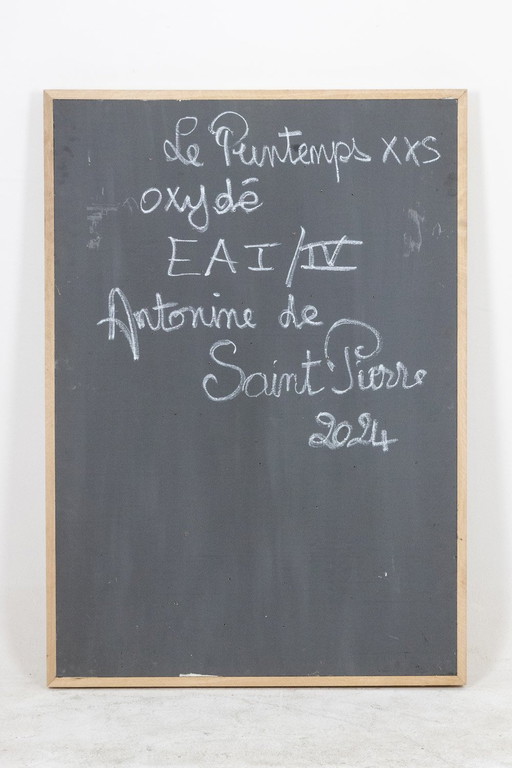 Le Printemps XXS
oxydé
EA I/IV
Antonine de
Saint Pierre
2024